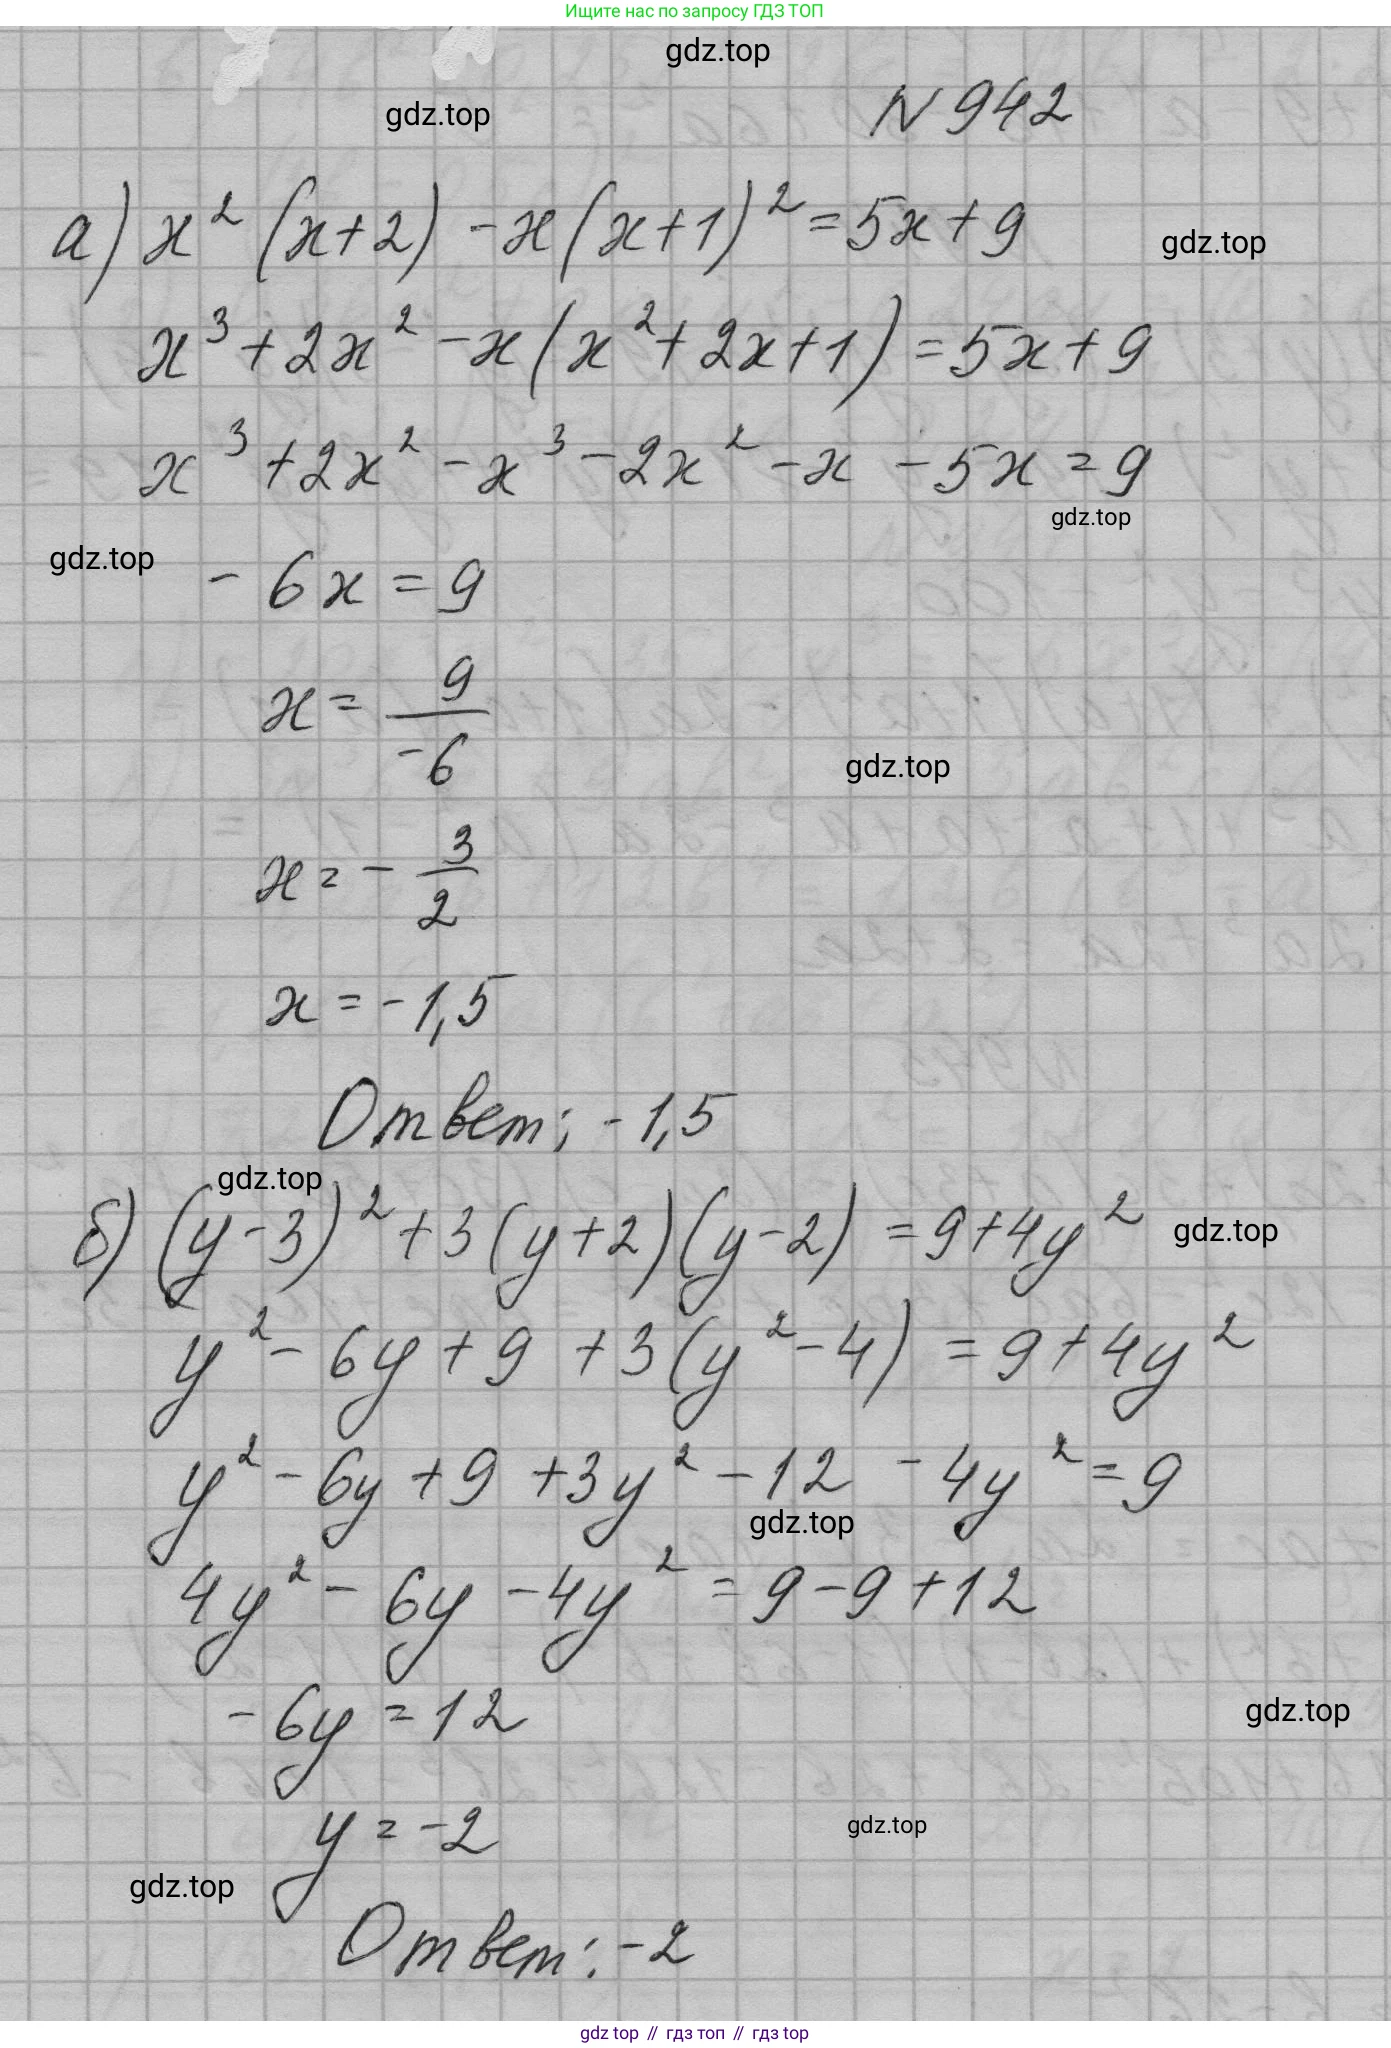 Ищите нас по запросу ГДЗ ТОП
gdz.top
gdz.top
N 942
а) x² (x+2) - x(x+1)² = 5x+9
gdz.top
x³ + 2x² - x(x² + 2x+1) = 5x+9
x³ + 2x² - x³ - 2x² - x - 5x = 9
gdz.top
gdz.top
- 6x = 9
x = 9/-6
gdz.top
x = - 3/2
x = -1,5
Ответ: -1,5
gdz.top
б) (y-3)² + 3(y+2)(y-2) = 9+4y²
gdz.top
y² - 6y + 9 + 3(y² - 4) = 9+4y²
y² - 6y + 9 + 3y² - 12 - 4y² = 9
gdz.top
4y² - 6y - 4y² = 9-9+12
-6y = 12
gdz.top
y = -2
gdz.top
gdz.top
Ответ: -2
gdz top // гдз топ // гдз top